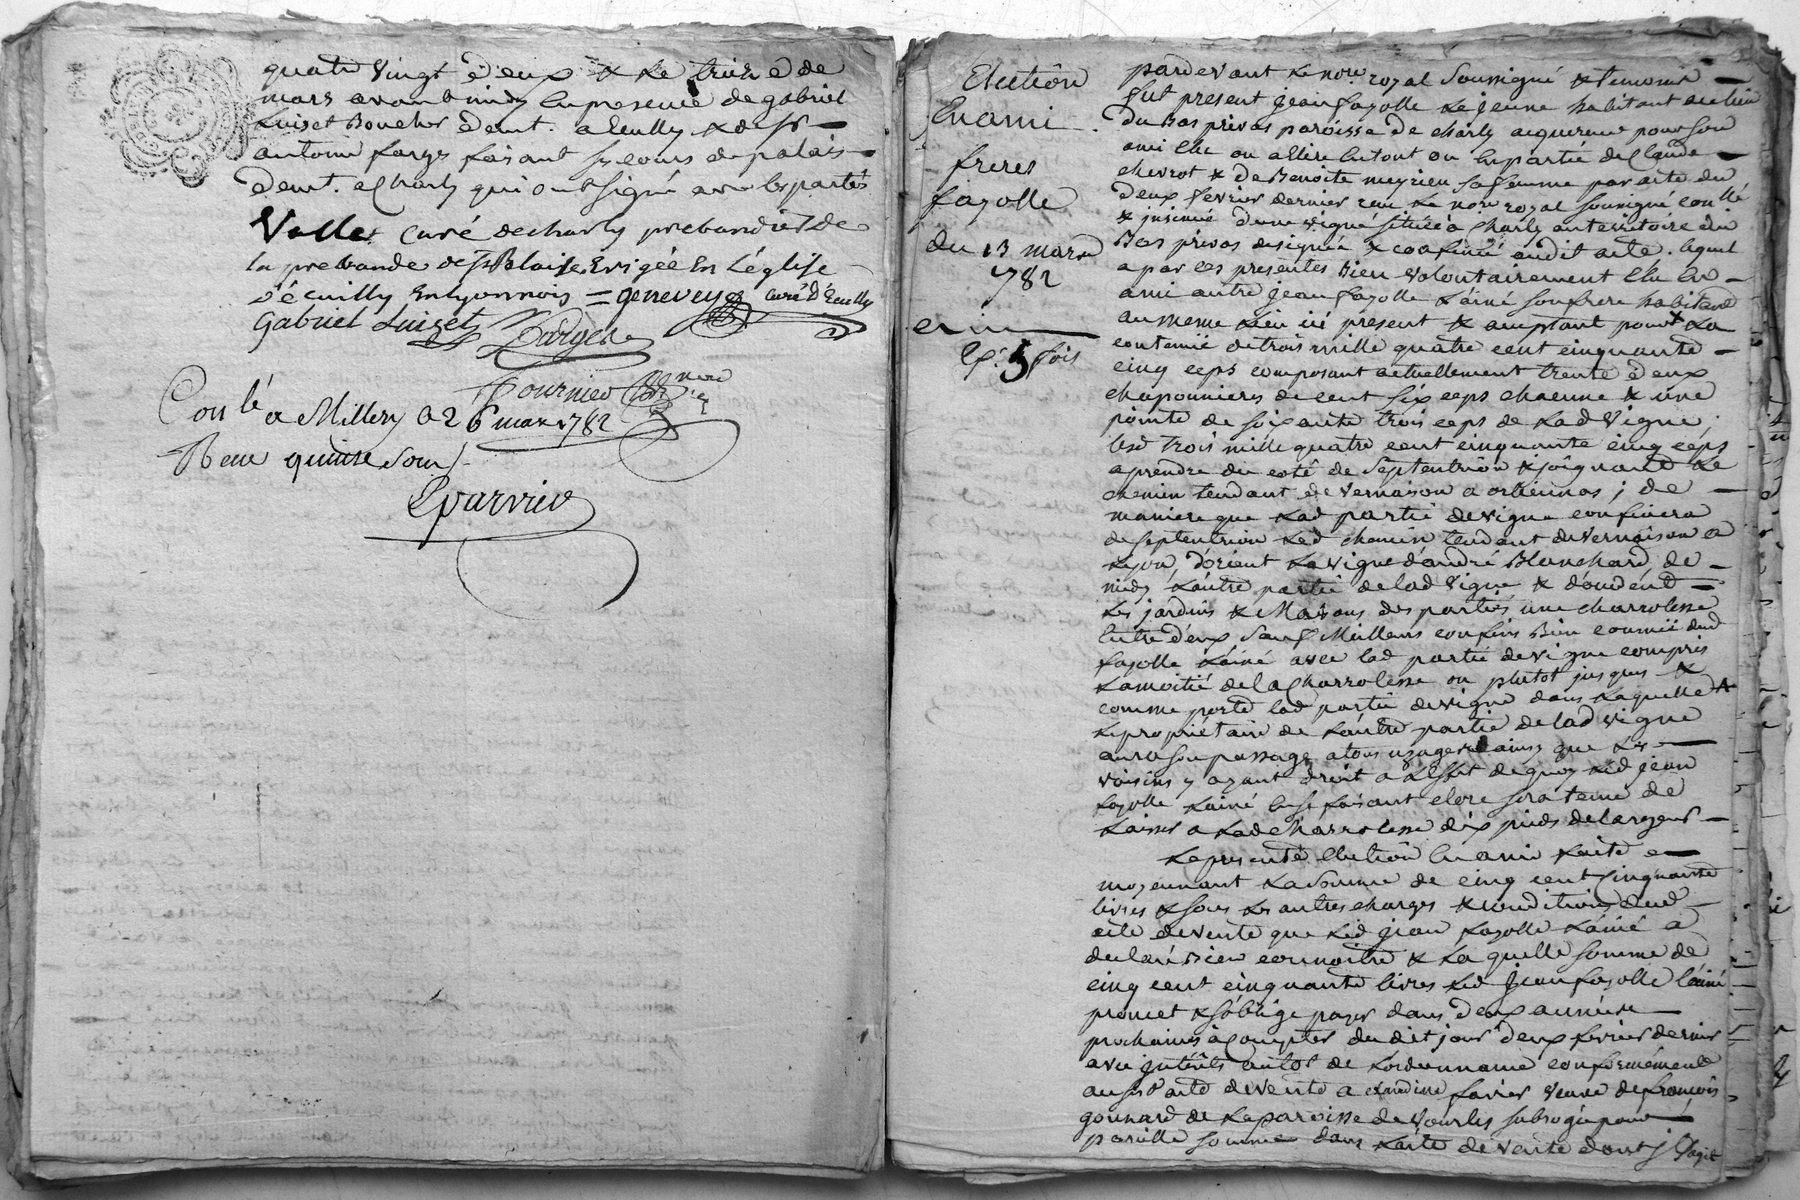 quatre vingt deux & le treize de
mars avant midy en presence de gabriel
Luizet Boucher demt. a Ecully & de Sr
antoine farges faisant ses cours de palais
demt. a Charly qui ont signé avec les parties
Vallet curé de charly prebandier de
la prebande de St Blaise Erigée En L'église
d'écuilly En lyonnois = genevey curé d'Ecully
Gabriel Luizet farges
fournier nore
Conlé a Millery a 26 mars 1782
Reçu quinze sous
Eparvier
Election
En ami
freres
fayolle
du 13 mars
1782
5 fois
pardevant le nore royal soussigné & temoins
fut present jean fayolle le jeune habitant au lieu
du Bas privas paroisse de charly acquereur pour son
ami elu ou a elire en tout ou en partie de Claude
chevrot & de Benoite meyrieu sa femme par acte du
deux fevrier dernier reçu le nore royal soussigné conllé
& insinué d'une vigne située à Charly au territoire du
Bas privas designée & confinée audit acte. lequel
a par ces presentes bien volontairement Elu En
ami autre jean fayolle L'ainé son frere habitant
au meme lieu ici present & acceptant pour la
contenue de trois mille quatre cent cinquante
cinq ceps composant actuellement trente deux
chaponnieres de cent six ceps chacune & une
pointe de soixante trois ceps de lad vigne,
lesd trois mille quatre cent cinquante cinq ceps
a prendre du coté de septentrion & joignant le
chemin tendant de vernaison a orliennas; de
maniere que lad partie de vigne confinera
de septentrion led chemin tendant de vernaison a
Lyon, d'orient la vigne d'andré Blanchard, de
midy L'autre partie de lad vigne & d'occident
les jardins & Maisons des parties une charrolesse
Entre deux sauf Meilleurs confins Bien connue dud
fayolle L'ainé avec lad partie de vigne compris
La moitié de la Charrolesse ou plutot jusques &
comme porte lad partie de vigne dans laquelle
le propriétaire de l'autre partie de lad vigne
aura son passage a tous usages ainsy que les
voisins y ayant droit a L'Effet de quoy led jean
fayolle L'ainé En se faisant clore sera tenu de
Laisser a lad charrolesse dix pieds de largeur
La presente Election En ami faite
moyennant La somme de cinq cent cinquante
livres & sous les autres charges & conditions dud
acte de vente que led jean fayolle L'ainé a
declaré bien connoitre & laquelle somme de
cinq cent cinquante livres led jean fayolle l'ainé
promet & s'oblige payer dans deux années
prochaines à compter dudit jour deux fevrier dernier
avec interêts au tot de l'ordonnance conformement
au susd acte de vente a claudine favier veuve de françois
gonnard de la paroisse de Vourles subrogée pour
pareille somme dans L'acte de vente dont s'agit